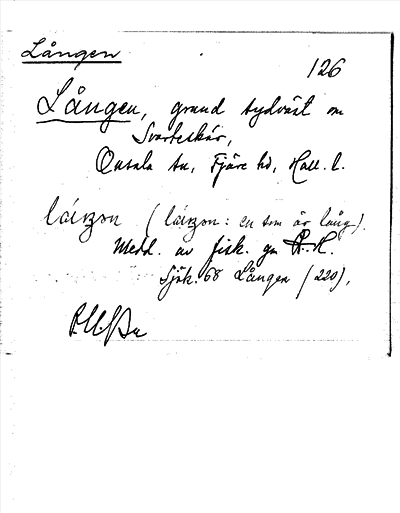 Lången
126
Lången, grund sydväst om
Svarteskär,
Onsala sn, Fjäre hd, Hall. l.
(låŋən : en som är lång).
Medd. av fisk. gm H.
Sjök. 68 Lången (220).